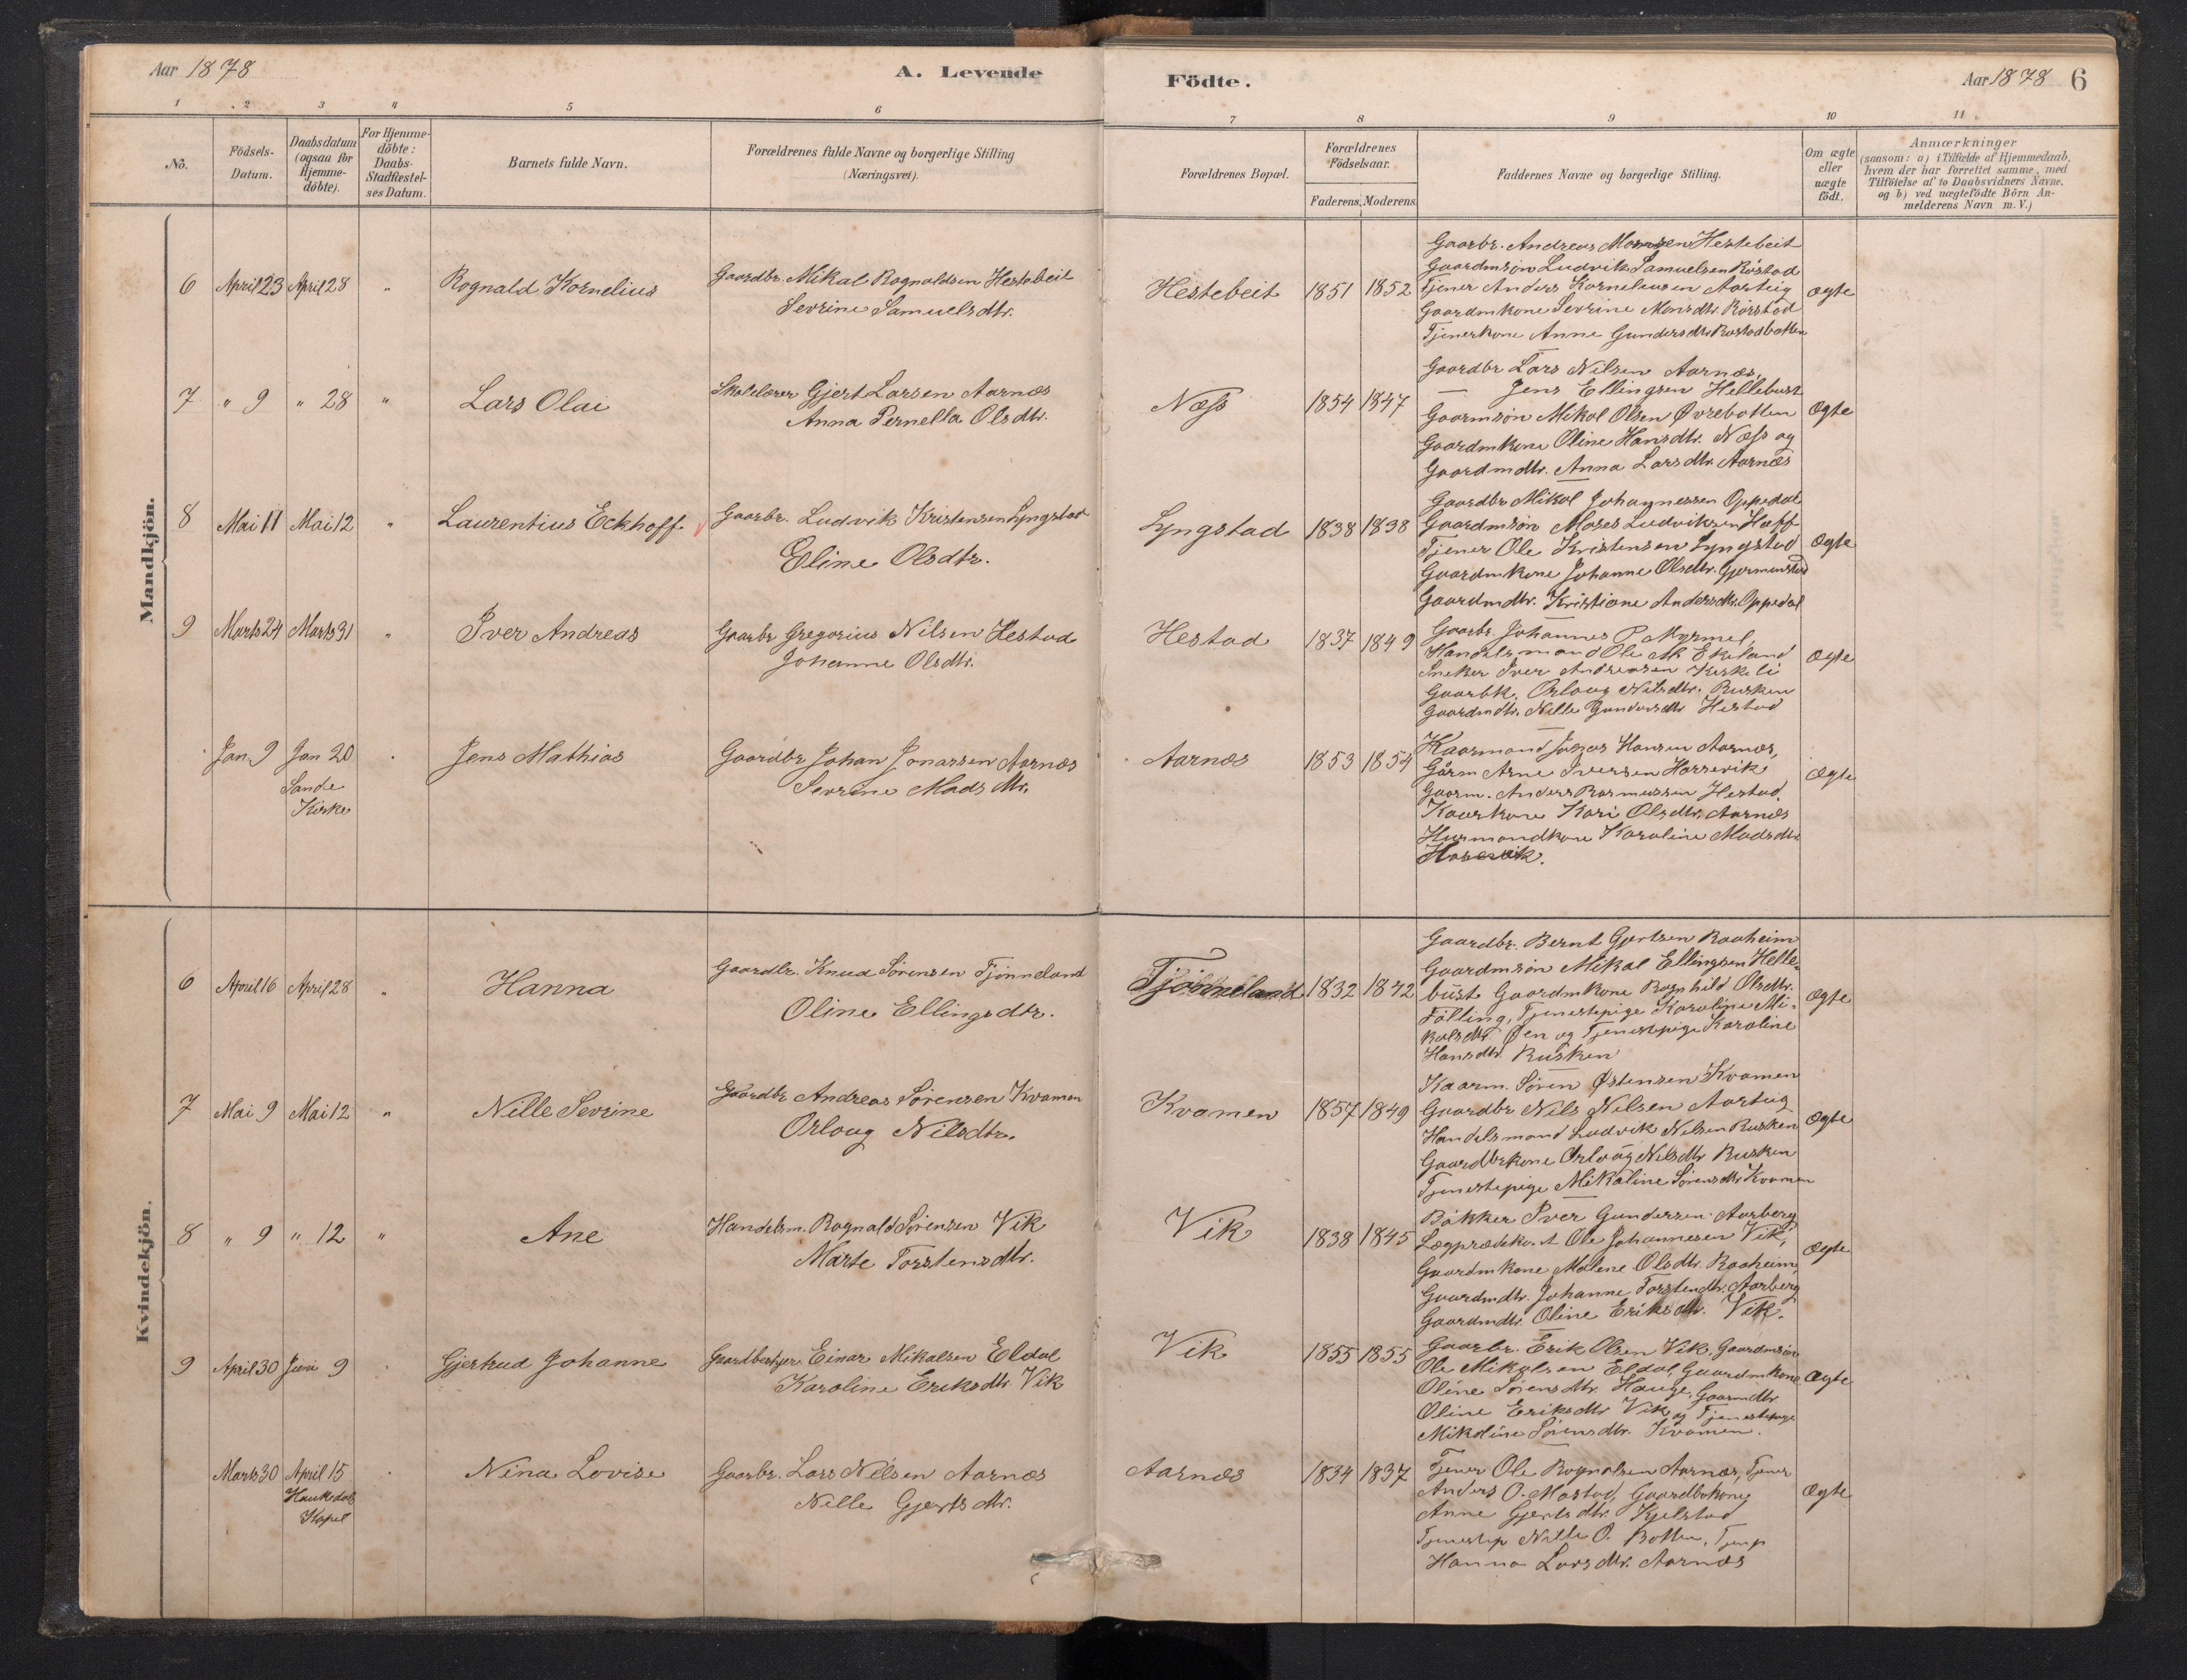 Aar 1878
A. Levende
Födte.
Aar 1878 6
1 2 3 4 5 6 7 8 9 10 11
No.
Födsels-
Datum.
Daabsdatum
(ogsaa for
Hjemme-
döbte).
For Hjemme-
döbte:
Daabs-
Stadfæstel-
ses Datum.
Barnets fulde Navn.
Forældrenes fulde Navne og borgerlige Stilling
(Næringsvei).
Forældrenes Bopæl.
Forældrenes
Födselsaar.
Faderens. Moderens.
Faddernes Navne og borgerlige Stilling.
Om ægte
eller
uægte
födt.
Anmærkninger
(saasom: a) i Tilfælde af Hjemmedaab,
hvem der har forrettet samme, med
Tilföielse af to Daabsvidners Navne.
og b) ved uægtefödte Börn An-
melderens Navn m. V.)
Mandkjön.
6 April 23 April 28 " Rognald Kornelius
Gaardbr. Mikal Rognaldsen Hestebeit
Sevrine Samuelsdtr.
Hestebeit 1851 1852
Gaarbr. Andreas Monsen Hestebeit
Gaardmsøn Ludvik Samuelsen Rörstad
Tjener Anders Korneliusen Aartug
Gaardmkone Sevrine Monsdtr. Rörstad
Tjenerkone Anne Gundersdtr. Rostadbotten
ægte
7 " 9 " 28 " Lars Olai
Skolelærer Gjert Larsen Aarnæs
Anna Pernella Olsdtr.
Næss 1854 1847
Gaardbr Lars Nilsen Aarnæs,
— Jens Ellingsen Hellebust
Gaarmsøn Mikal Olsen Øvrebotten
Gaardmkone Oline Hansdtr. Næss og
Gaardmdtr. Anna Larsdtr. Aarnæs
Ægte
8 Mai 11 Mai 12 " Laurentius Eckhoff
Gaarbr. Ludvik Kristensen Lyngstad
Eline Olsdtr.
Lyngstad 1838 1838
Gaardbr Mikal Johannessen Oppedal
Gaardmsøn Moses Ludviksen Hæff
Tjener Ole Kristensen Lyngstad
Gaardmkone Johanne Olsdtr. Gjermunstad
Gaardmdtr. Kristiane Andersdtr. Oppedal
Ægte
9 Marts 24 Marts 31 " Iver Andreas
Gaarbr Gregorius Nilsen Hestad
Johanne Olsdtr.
Hestad 1837 1849
Gaarbr. Johannes P. Myrmel,
Handelsmand Ole M Ekeland
Sneker Iver Andreasen Kirkeli
Gaarbk. Orloug Nilsdtr. Rusken
Gaardmdtr. Nille Gundersdtr Hestad
Ægte
Jan. 9 Jan 20
Sande
Kirke
Jens Mathias
Gaardbr Johan Jonassen Aarnæs
Sevrine Madsdtr.
Aarnæs 1853 1854
Kaarmand Jasper Hansen Aarnæs,
Gårm Arne Iversen Horsevik
Gaarm. Anders Rasmussen Hestad,
Kaarkone Kari Olsdtr. Aarnæs
Husmandkone Karoline Madsdtr
Horsevik.
Ægte
Kvindekjön.
6 April 16 April 28 " Hanna
Gaardbr. Knud Sörensen Tjønneland
Oline Ellingsdtr.
Tjønneland 1832 1842
Gaardbr. Bernt Gjertsen Raaheim
Gaardmsøn Mikal Ellingsen Helle-
bust Gaardmkone Ragnhild Olsdtr.
Fölling, Tjenestepige Karoline Mi-
kalsdtr. Øen og Tjenestepige Karoline
Hansdtr. Rusken
Ægte
7 Mai 9 Mai 12 " Nille Sevrine
Gaardbr Andreas Sörensen Kvamen
Orloug Nilsdtr.
Kvamen 1857 1849
Kaarm. Sören Østensen Kvamen
Gaardbr Nils Nilsen Aartug
Handelsmand Ludvik Nilsen Rusken
Gaardbrkone Orloug Nilsdtr Rusken
Tjenestepige Mikaline Sörensdtr Kvamen
Ægte
8 " 9 " 12 " Ane
Handelsm. Rognald Sörensen Vik
Marte Torstensdtr.
Vik 1838 1845
Bökker Iver Gundersen Aarberg
Lægprædikant Ole Johannesen Vik,
Gaardmkone Malene Olsdtr. Raaheim,
Gaardmdtr. Johanne Torstendtr. Aarberg
Gaardmdtr. Oline Eriksdtr. Vik.
Ægte
9 April 30 Juni 9 Gjertrud Johanne
Gaardbestyrer Einar Mikalsen Eldal
Karoline Eriksdtr. Vik
Vik 1855 1855
Gaarbr. Erik Olsen Vik, Gaardmsøn
Ole Mikalsen Eldal, Gaardmkone
Oline Sörensdtr. Hauge, Gaarmdtr
Oline Eriksdtr Vik og Tjenestepige
Mikaline Sörensdtr. Kvamen.
Ægte
Marts 30 April 15
Haukedals
Kapel
Nina Lovise
Gaarbr. Lars Nilsen Aarnæs
Nille Gjertsdtr.
Aarnæs 1834 1837
Tjener Ole Rognalsen Aarnæs, Tjener
Anders O. Mostad, Gaardbrkone
Anne Gjertsdtr. Kjelstad
Tjenestep Nille O. Botten, Tjenp
Hanna Larsdtr. Aarnæs
Ægte